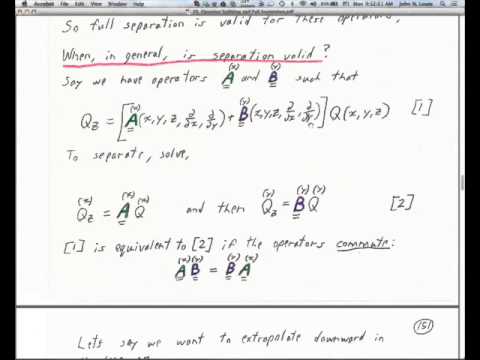 Acrobat File Edit View Window Help
So full separation is valid for these operators.
When, in general, is separation valid?
Say we have operators A^(x) and B^(y) such that
Q_z = [A^(x)(x,y,z,∂/∂x,∂/∂y) + B^(y)(x,y,z,∂/∂x,∂/∂y)] Q(x,y,z) [1]
To separate, solve,
Q_z^(x) = A^(x) Q^(x) and then Q_z^(y) = B^(y) Q^(y) [2]
[1] is equivalent to [2] if the operators commute:
A^(x) B^(y) = B^(y) A^(x)
151
Lets say we want to extrapolate downward in